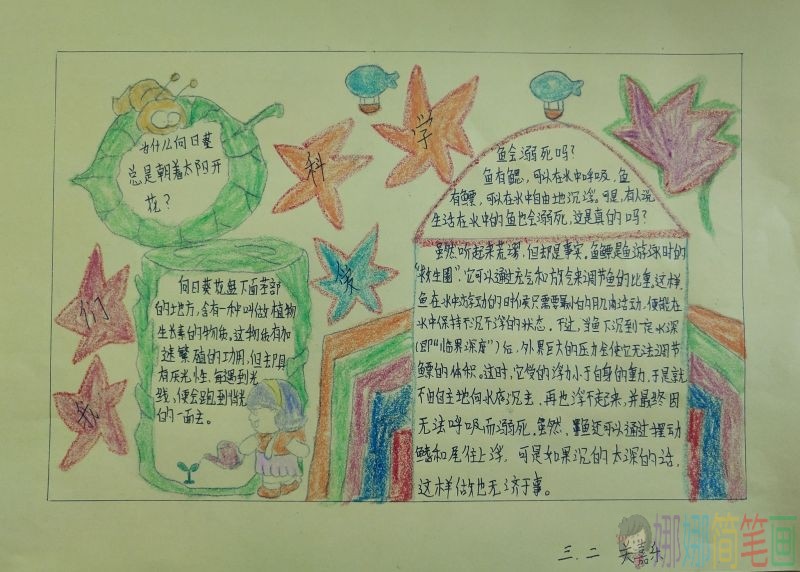 我
们
爱
科
学
为什么向日葵
总是朝着太阳开
花？
向日葵花盘下面茎部
的地方，含有一种叫做植物
生长素的物质。这物质有加
速繁殖的功用，但却具
有厌光性，每遇到光
线，便会跑到背光
的一面去。
鱼会溺死吗？
鱼有鳃，可以在水中呼吸，鱼
有鳔，可以在水中自由地沉浮。可是，有人说
生活在水中的鱼也会溺死，这是真的吗？
虽然听起来荒谬，但却是事实。鱼鳔是鱼游泳时的
“救生圈”，它可以通过充气和放气来调节鱼的比重。这样，
鱼在水中游动的时候只需要最小的肌肉活动，便能在
水中保持不沉不浮的状态。不过，当鱼下沉到一定水深
(即“临界深度”)后，外界巨大的压力会使它无法调节
鳔的体积。这时，它受的浮力小于自身的重力，于是就
不由自主地向水底沉去，再也浮不起来，并最终因
无法呼吸而溺死。虽然，鱼还可以通过摆动
鳍和尾往上浮，可是如果沉的太深的话，
这样做也无济于事。
三.二 关嘉乐
娜娜简笔画